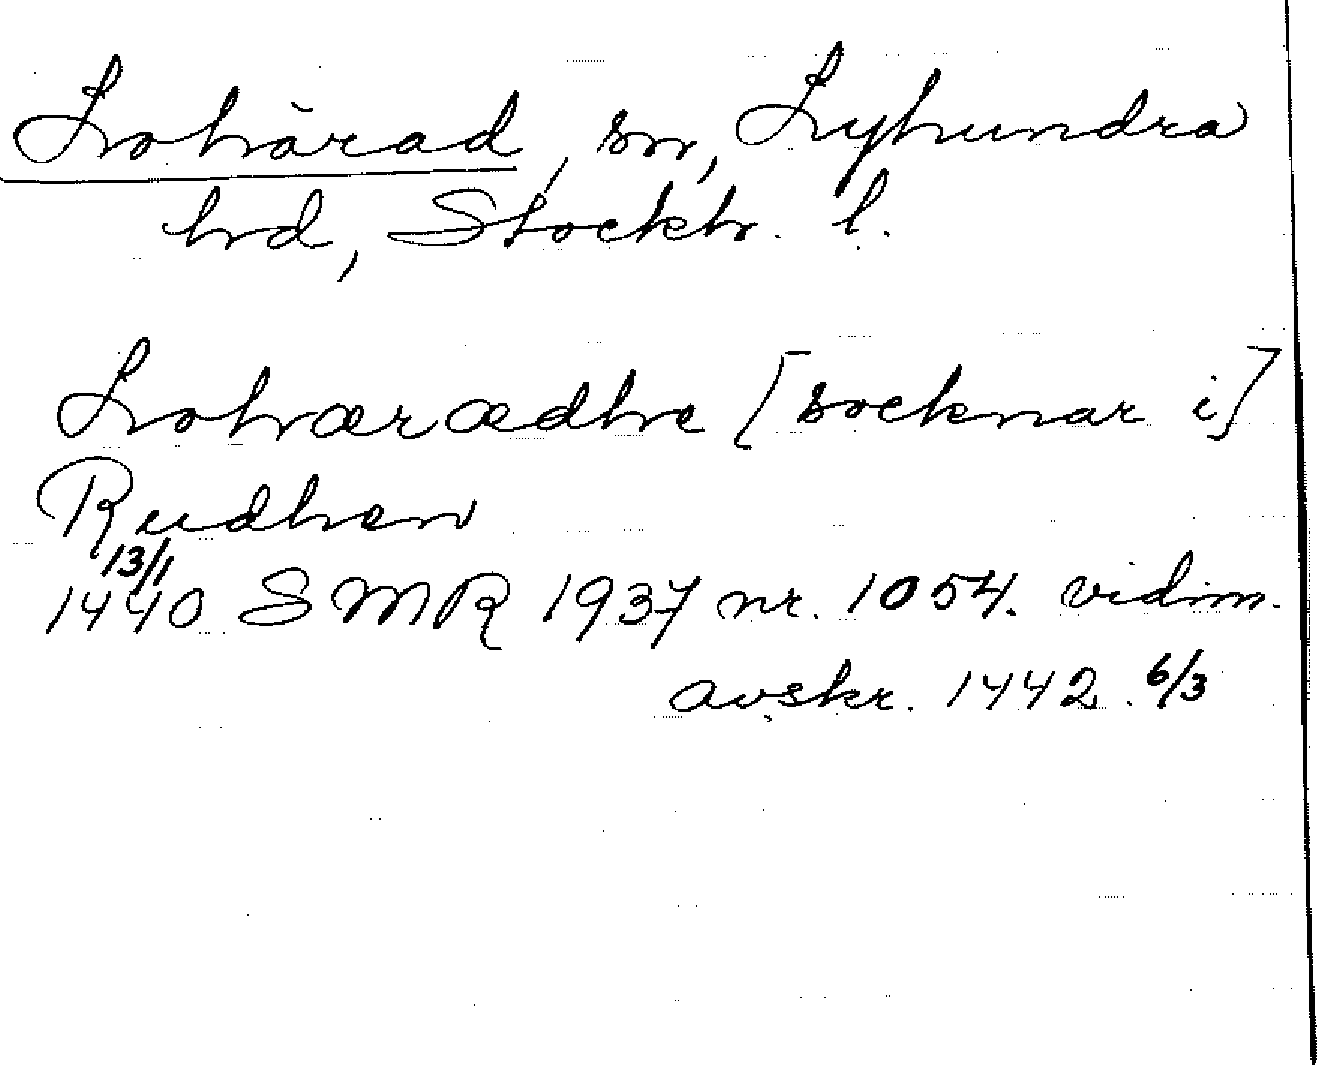 Lohärad, sn, Lyhundra
hd, Stockh. l.
Lohærædhe [socknar i]
Rudhen
13/1
1440 SMR 1937 nr. 1054. vidim.
avskr. 1442. 6/3